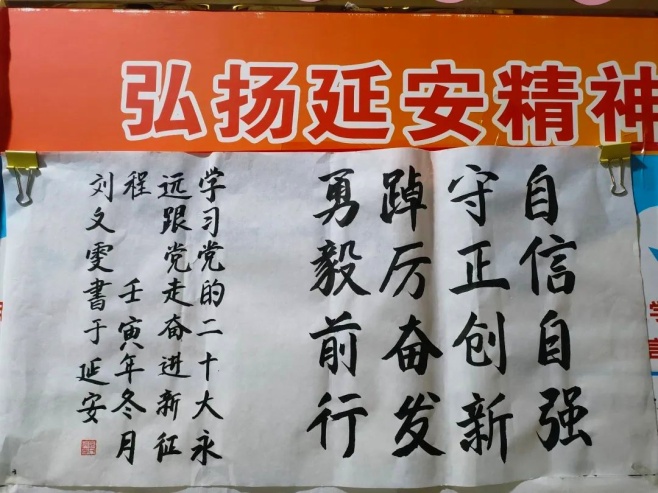 弘扬延安精神
自信自强
守正创新
踔厉奋发
勇毅前行
学习党的二十大永
远跟党走奋进新征
程 壬寅年冬月
刘文雯書于延安